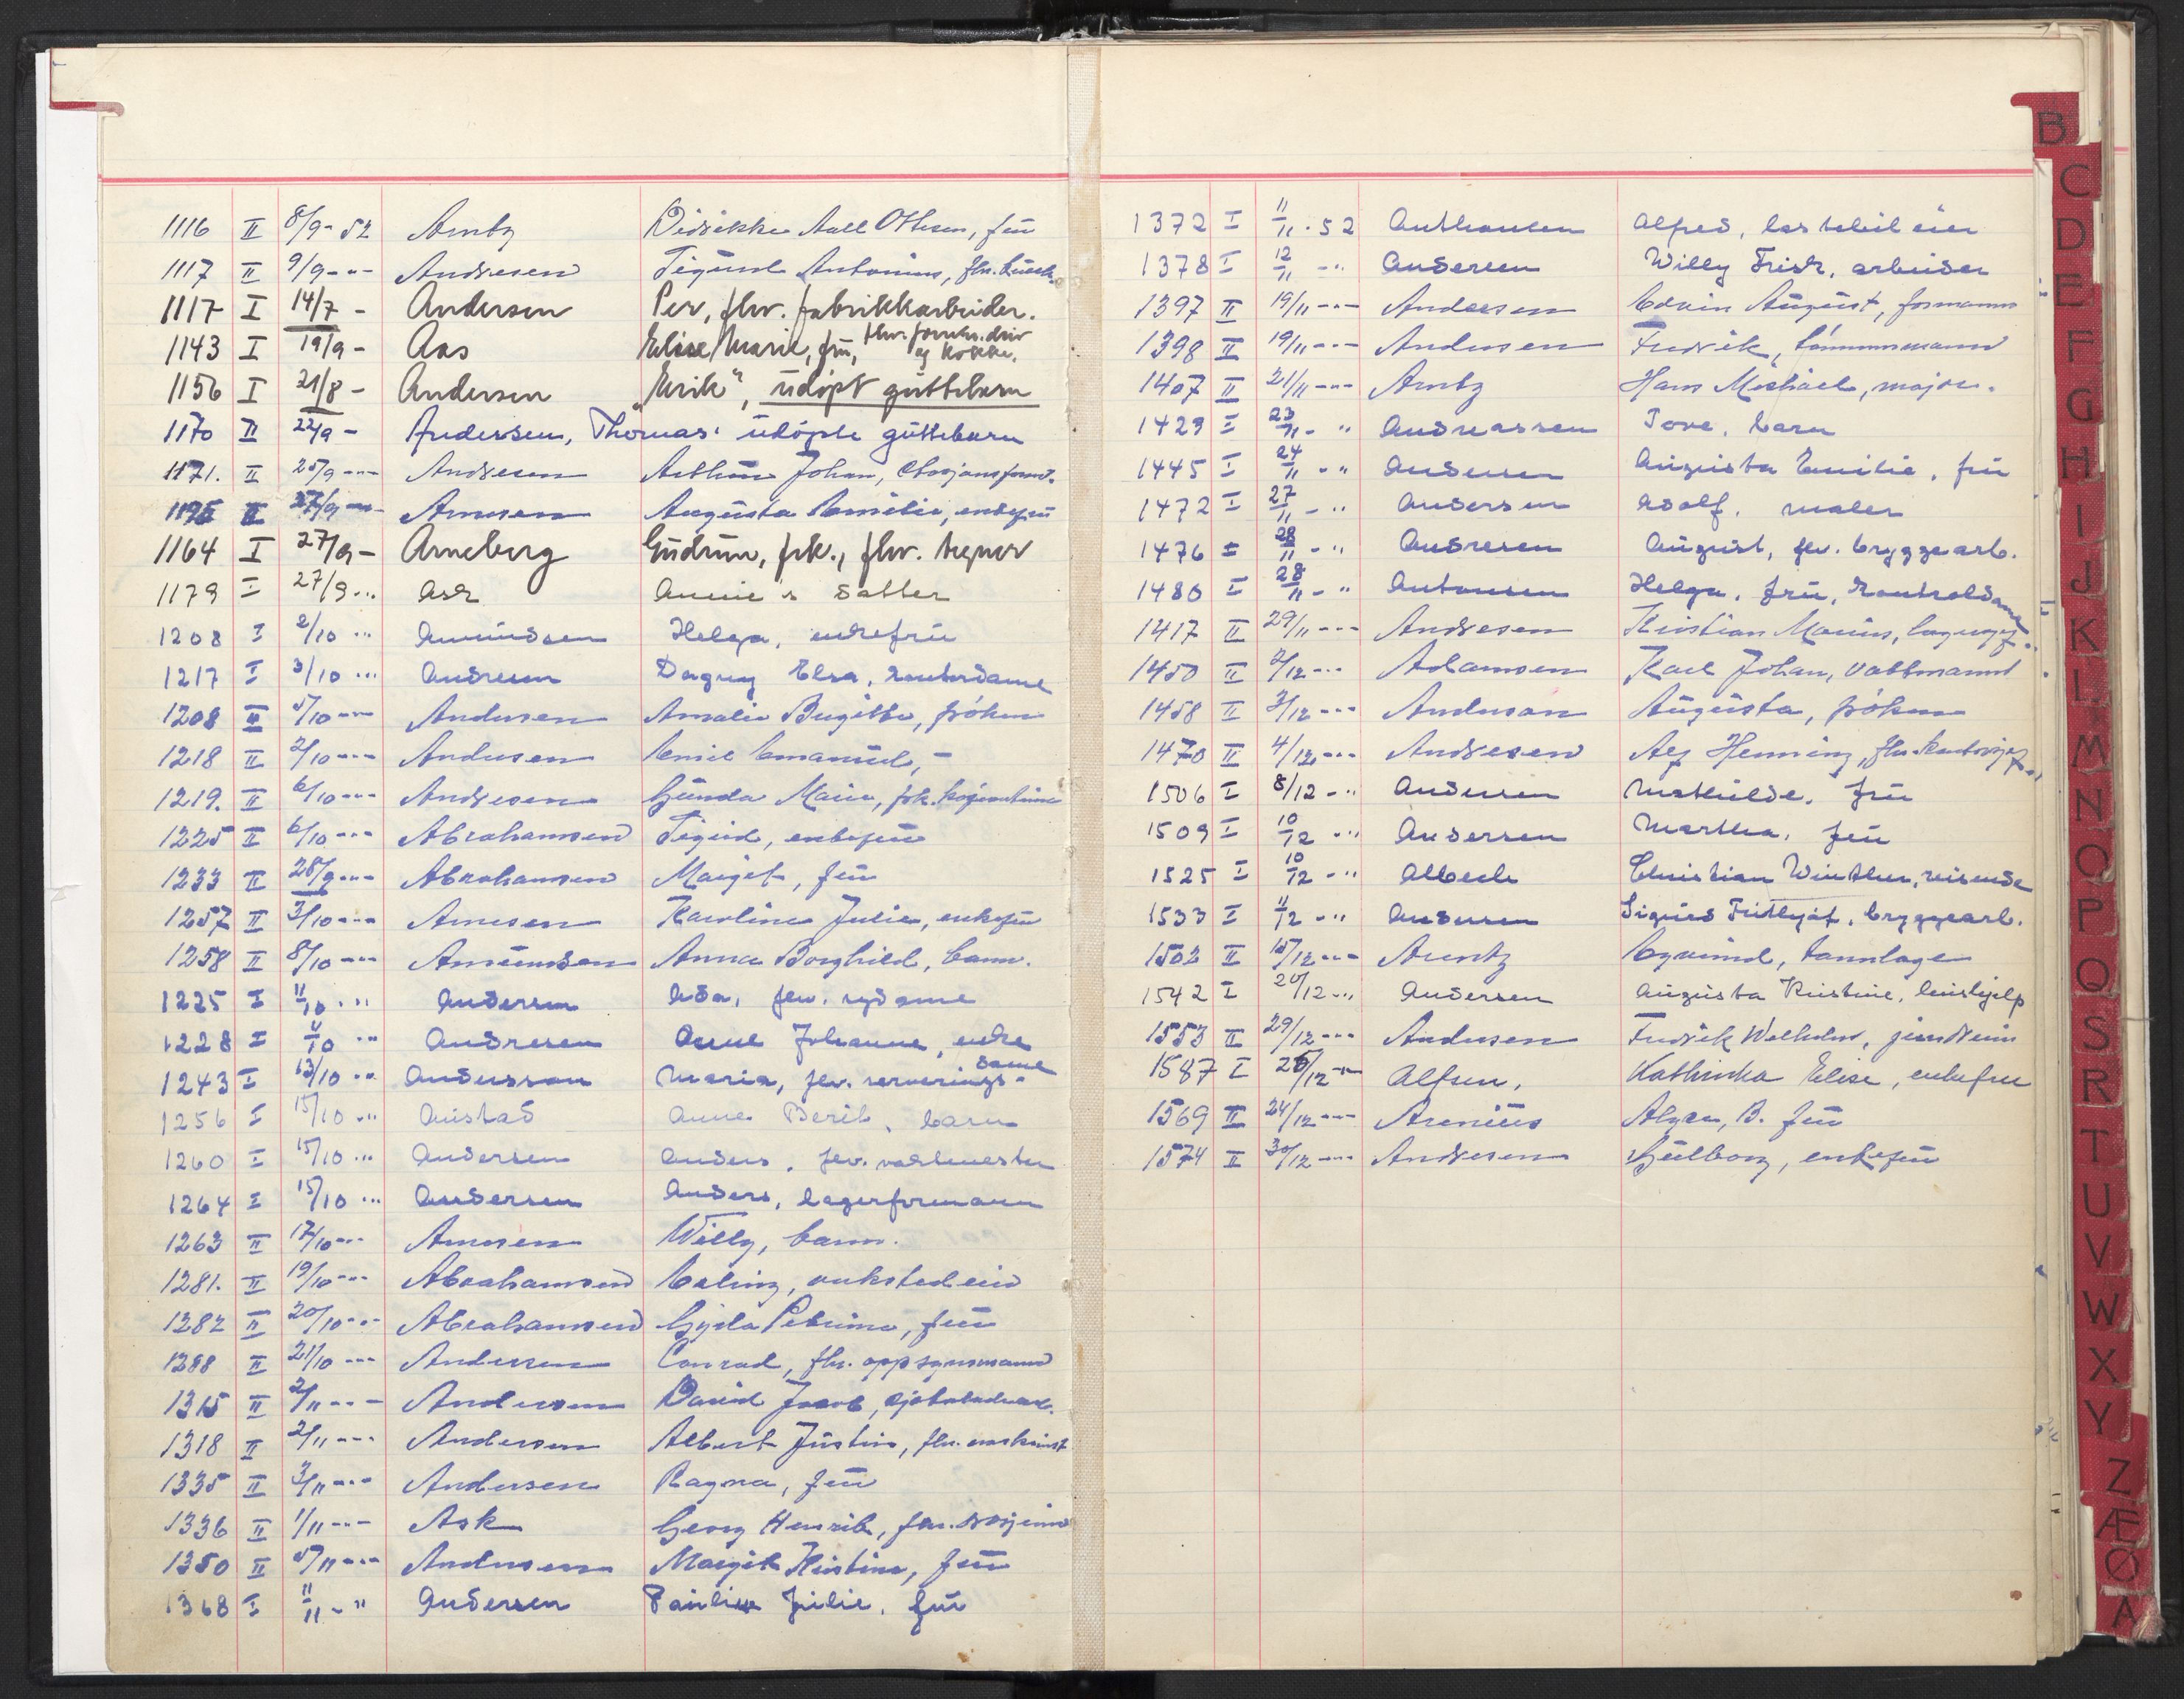 1116 II 8/9-52 Arntz Didrikke Aall Ottesen, frü
1117 II 9/9-"- Andresen Sigurd Antonius, fhv.
1117 I 14/7 - Andersen Per, fhv. fabrikkarbeider.
1143 I 19/9 - Aas Elise Marie, frü, fhv. forretn.driv
1156 I 21/8 - Andersen "Erik", üdöpt güttebarn
1170 II 22/9 - Andersen, Thomas' üdöpte güttebarn
1171. II 25/9 -"- Andresen Arthur Johan,
1195 II 27/9 -"- Arnesen Augüsta Emilie, enkefrü
1164 I 27/9 - Arneberg Güdrün, frk., fhv. tegner
1179 I 27/9 -" Ask Annie's datter
1208 I 2/10 -" Amündsen Helga, enkefrü
1217 I 3/10 -" Andresen Dagny Elsa, kontordame
1208 II 5/10 -"- Andersen Amalie Birgitte, fröken
1218 II 2/10 -"- Andersen Emil Emanüel, -
1219. II 6/10 -"- Andresen Günda Marie, frk.
1225 II 6/10 -"- Abrahamsen Sigrid, enkefrü
1233 II 28/9 -"- Abrahamsen Margit, frü
1257 II 3/10 -"- Arnesen Karoline Julie, enkefrü
1258 II 8/10 -"- Amündsen Anna Borghild, barn.
1225 I 11/10 -" Andersen Ada, fhv. sydame
1228 I 11/10 -" Andresen Anne Johanne, enke
1243 I 13/10 -" Andersson Maria, fhv. serverings-dame
1256 I 15/10 -" Anstad Anne Berit, barn
1260 I 15/10 -" Andersen Anders, fhv. vaktmester
1264 I 15/10 -" Andersen Anders, lagerformann
1263 II 17/10 -"- Arnesen Willy, barn.
1281. II 19/10 -"- Abrahamsen Erling, verksted eier
1282 II 20/10 -"- Abrahamsen Gyda Petrine, frü
1288 II 21/10 -"- Andersen Conrad, fhv. oppsynsmann
1315 II 2/11 -"- Andersen David Jacob,
1318 II 2/11 -"- Andersen Albert Jüstin, fhv. maskinist
1335 II 3/11 -"- Andersen Ragna, frü
1336 II 1/11 -"- Ask Georg Henrik, fhv.
1350 II 5/11 -"- Andersen Margit Kristine, frü
1368 I 11/11 -" Andersen Pauline Julie, frü
1372 I 11/11-52 Anthonsen Alfred, lastebil eier
1378 I 12/11 -" Andersen Willy Frisk, arbeider
1397 II 19/11 -"- Andersen Edvin August, formann
1398 II 19/11 -"- Andersen Fredrik, tömmermann
1407 II 21/11 -"- Arntz Hans Michael, major.
1429 I 23/11 -" Andreassen Tove, barn
1445 I 24/11 -" Andersen Augüsta Emilie, frü
1472 I 27/11 -" Andersen Adolf, maler
1476 I 28/11 -" Andresen Augüst, fhv. bryggearb.
1480 I 28/11 -" Antonsen Helga, frü, kontroldame
1417 II 29/11 -"- Andresen Kristian Marius,
1450 II 2/12 -"- Adamsen Karl Johan, vaktmann
1458 II 3/12 -"- Anderson Augüsta, fröken
1470 II 4/12 -"- Andresen Alf Henning, fhv.
1506 I 8/12 -" Andersen Mathilde, frü
1509 I 10/12 -" Andersen Martha, frü
1525 I 10/12 -" Albech Christian Winther, reisende
1533 I 11/12 -" Andersen Sigurd Fridtjof, bryggearb.
1502 II 15/12 -"- Arentz Eyvind, tannlæge
1542 I 20/12 -" Andersen Augüsta Kristine, hüshjelp
1553 II 29/12 -"- Andersen Fredrik Wilhelm,
1587 I 26/12 -" Alfsen, Kathinka Elise, enkefru
1569 II 24/12 -"- Areniüs B. frü
1574 II 30/12 -"- Andresen Gülborg, enkefrü
B
C
D
E
F
G
H
I
J
K
L
M
N
O
P
Q
S
R
T
U
V
W
X
Y
Z
Æ
Ø
A